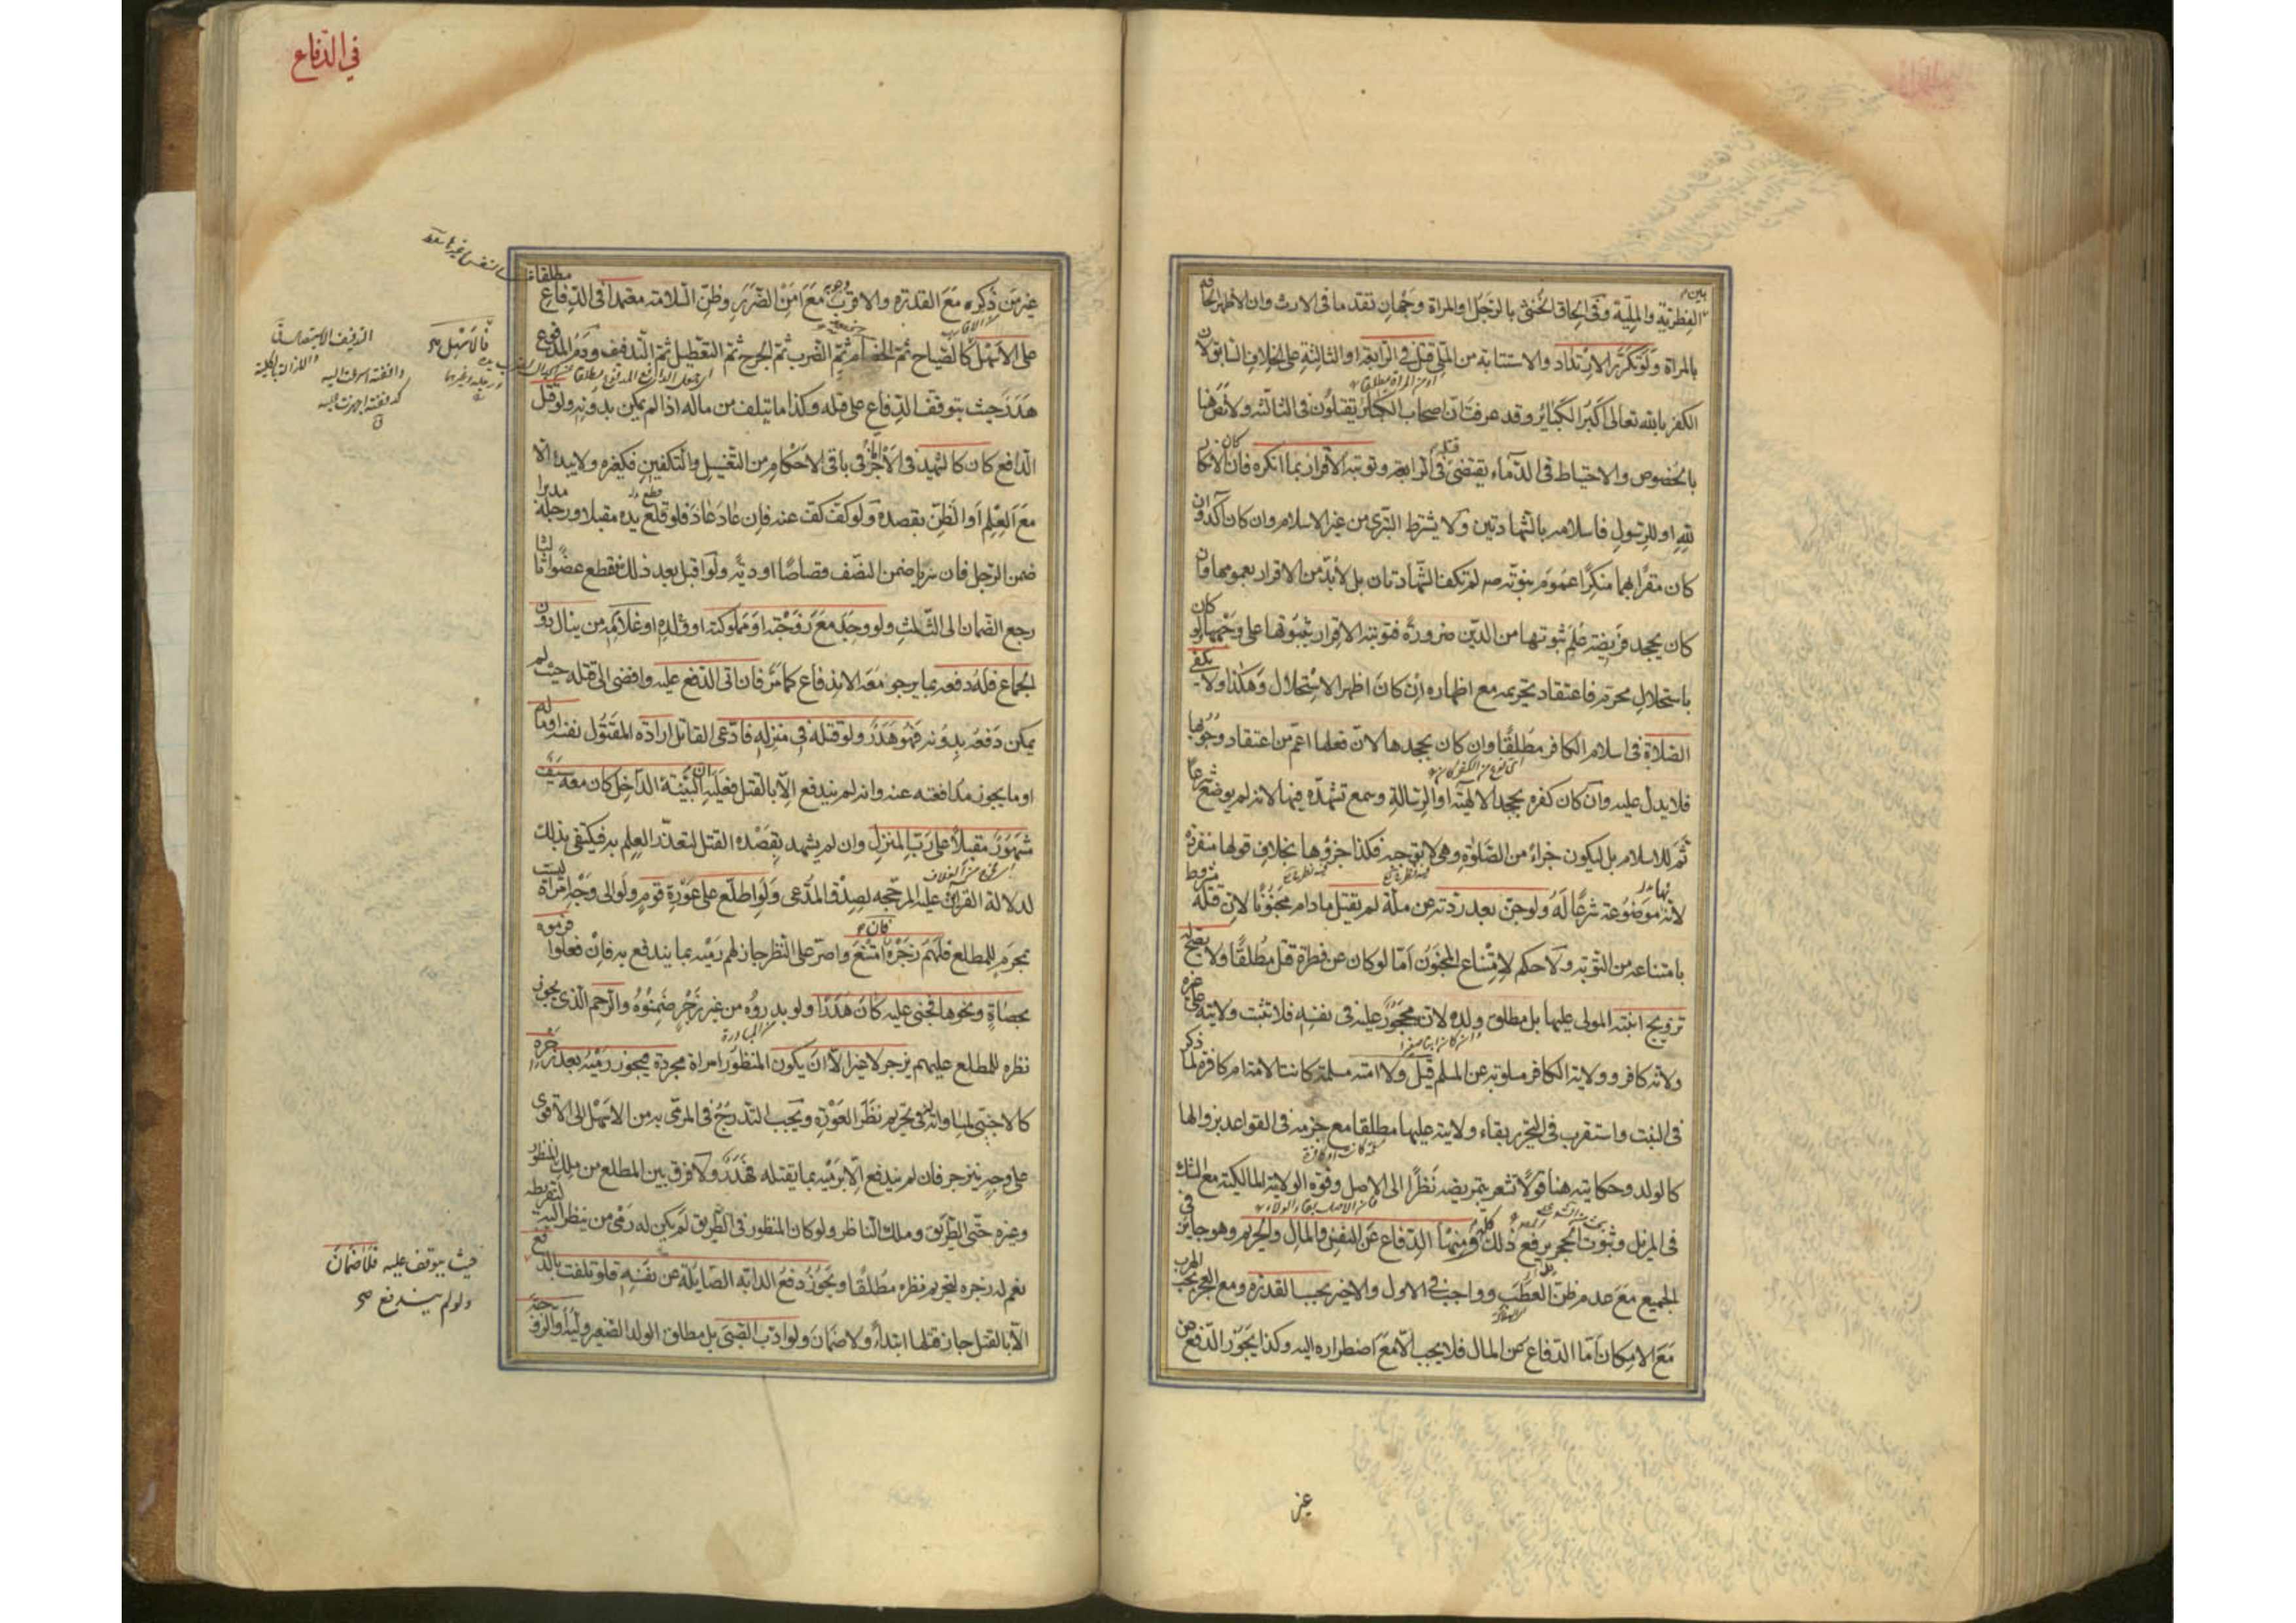 الفطرية والملية وفى الحاق الخنثى بالرجل او المراة وجهان تقدما فى الارث وان الاظهر الحاقه
بالمراة ولو تكرر الارتداد والاستتابة من الملى قتل فى الرابعة او الثالثة على الخلاف السابق لان
الكفر بالله تعالى اكبر الكباير وقد عرفت ان اصحاب الكباير يقتلون فى الثالثة ولا نص هنا
بالخصوص والاحتياط فى الدماء يقتضى قتله فى الرابعة وتوبته الاقرار بما انكره فان كان الانكار
لله او للرسول فاسلامه بالشهادتين ولا يشترط التبرى من غير الاسلام وان كان آكد وان
كان مقرا بهما منكرا عموم نبوته صه لم تكف الشهادتان بل لابد من الاقرار بعمومها وان
كان بجحد فريضة علم ثبوتها من الدين ضرورة فتوبته الاقرار بثبوتها على وجهها ولو كان
باستحلال محرم فاعتقاد تحريمه مع اظهاره ان كان اظهر الاستحلال وهكذا ولا يكفى
الصلاة فى اسلام الكافر مطلقا وان كان يجحدها لان فعلها اعم من اعتقاد وجوبها
فلا يدل عليه وان كان كفره بجحد الالهية او الرسالة وسمع تشهده فيها لانه لم يوضع شرعا
ثم للاسلام بل ليكون جزاء من الصلوة وهى لا توجبه فكذا جزؤها بخلاف قولها منفردة
لانها موضوعة شرعا له ولو جن بعد ردته عن ملة لم يقتل مادام مجنونا لان قتله مشروط
بامتناعه من التوبة ولا حكم لامتناع المجنون اما لو كان عن فطرة قتل مطلقا ولا يصح له
تزويج ابنته المولى عليها بل مطلق ولده لانه محجور عليه فى نفسه فلا تثبت ولايته على غيره
ولانه كافر وولاية الكافر مسلوبة عن المسلم قيل ولا امته مسلمة كانت الامة ام كافرة لما ذكر
فى البنت واستقرب فى التحرير بقاء ولايته عليها مطلقا مع جزمه فى القواعد بزوالها
كالولد وحكايته هنا قولا تشعر بتمريضه نظرا الى الاصل وقوة الولاية المالكية مع الشك
فى المزيل وثبوت الحجر يرفع ذلك كله ومنها الدفاع عن النفس والمال والحريم وهو جايز فى
الجميع مع عدم ظن العطب وواجب فى الاول والاخير بحسب القدرة ومع العجز يجب الهرب
مع الامكان اما الدفاع عن المال فلا يجب الا مع اضطراره اليه وكذا يجوز الدفع عن
غير
فى الدفاع
غير من ذكره مع القدرة والاقرب وجوبه مع امن الضرر وظن السلامة معتمدا فى الدفاع مطلقا
على الاسهل كالصياح ثم الخصام ثم الضرب ثم الجرح ثم التعطيل ثم التدفيف ودم المدفوع
هدر حيث يتوقف الدفاع على قتله وكذا ما يتلف من ماله اذا لم يمكن بدونه ولو قتل
الدافع كان كالشهيد فى الاجر اما فى باقى الاحكام من التغسيل والتكفين فكغيره ولا يبداه الا
مع العلم او الظن بقصده ولو كف كف عنه فان عاد عاد فلو قطع يده مقبلا ورجله مدبرا
ضمن الرجل فان سريا ضمن النصف قصاصا او دية ولو اقبل بعد ذلك فقطع عضوا ثالثا
رجع الضمان الى الثلث ولو وجد مع زوجته او مملوكته او ولده او غلامه من ينال دون
الجماع فله دفعه بما يرجو معه الاندفاع كما مر فان اتى الدفع عليه وافضى الى قتله حيث لم
يمكن دفعه بدونه فهو هدر ولو قتله فى منزله فادعى القاتل ارادة المقتول نفسه او ماله
او ما يجوز مدافعته عنه وانه لم يندفع الا بالقتل فعليه البينة ان الداخل كان معه سيف
مشهور مقبلا على رب المنزل وان لم يشهد بقصده القتل لتعذر العلم به فيكتفى بذلك
لدلالة القراين عليه المرجحة لصدق المدعى ولو اطلع على عورة قوم ولو الى وجه امراة ليست
بمحرم للمطلع فلهم زجره فان امتنع واصر على النظر جاز لهم رميه بما يندفع به فان فعلوا فرموه
بحصاة ونحوها فجنى عليه كان هدرا ولو بدروه من غير زجر ضمنوه والرحم الذى يجوز
نظره للمطلع عليهم يزجر لا غير الا ان يكون المنظور امراة مجردة فيجوز رميه بعد زجره
كالاجنبى لمساواته فى تحريم نظر العورة ويجب التدرج فى المرمى به من الاسهل الى الاقوى
على وجه ينزجر فان لم يندفع الا برميه بما يقتله فهدر ولا فرق بين المطلع من ملك المنظور
وغيره حتى الطريق وملك الناظر ولو كان المنظور فى الطريق لم يكن له رمى من ينظر اليه لتفريطه
نعم له زجره لتحريم نظره مطلقا ويجوز دفع الدابة الصايلة عن نفسه فلو تلفت بالدفع
الا بالقتل جاز قتلها ابتداء ولا ضمان ولو ادب الصبى بل مطلق الولد الصغير وليه او الزوجة
فالاسهل صح
التدفيف الاستعداد
حيث يتوقف عليه فلا ضمان
ولو لم يندفع صح